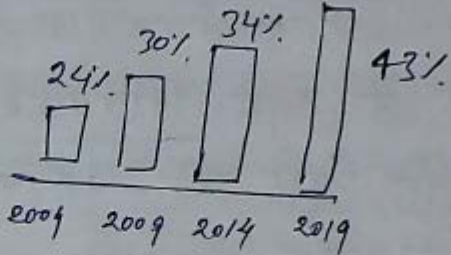 24%. 30%. 34%. 43%.
2004 2009 2014 2019